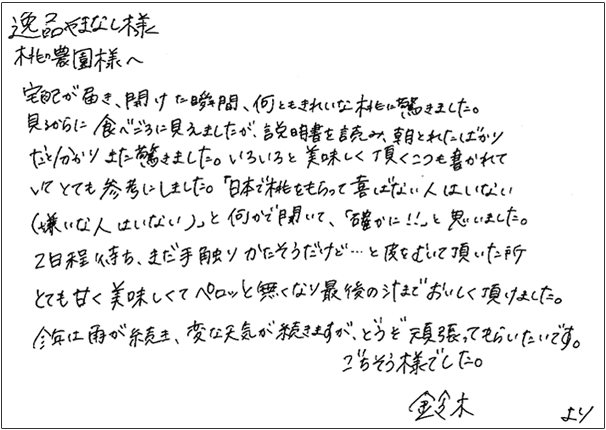 逸品やまなし様
桃の農園様へ
宅配が届き、開けた瞬間、何ともきれいな桃に驚きました。
見るからに食べごろに見えましたが、説明書を読み、朝とれたばかり
だと分かりまた驚きました。いろいろと美味しく頂くこつも書かれて
いてとても参考にしました。「日本で桃をもらって喜ばない人はいない
(嫌いな人はいない)」と何かで聞いて、「確かに!!」と思いました。
2日程待ち、まだ手触りかたそうだけど…と皮をむいて頂いた所
とても甘く美味しくてペロッと無くなり最後の汁までおいしく頂けました。
今年は雨が続き、変な天気が続きますが、どうぞ頑張ってもらいたいです。
ごちそう様でした。
鈴木
より